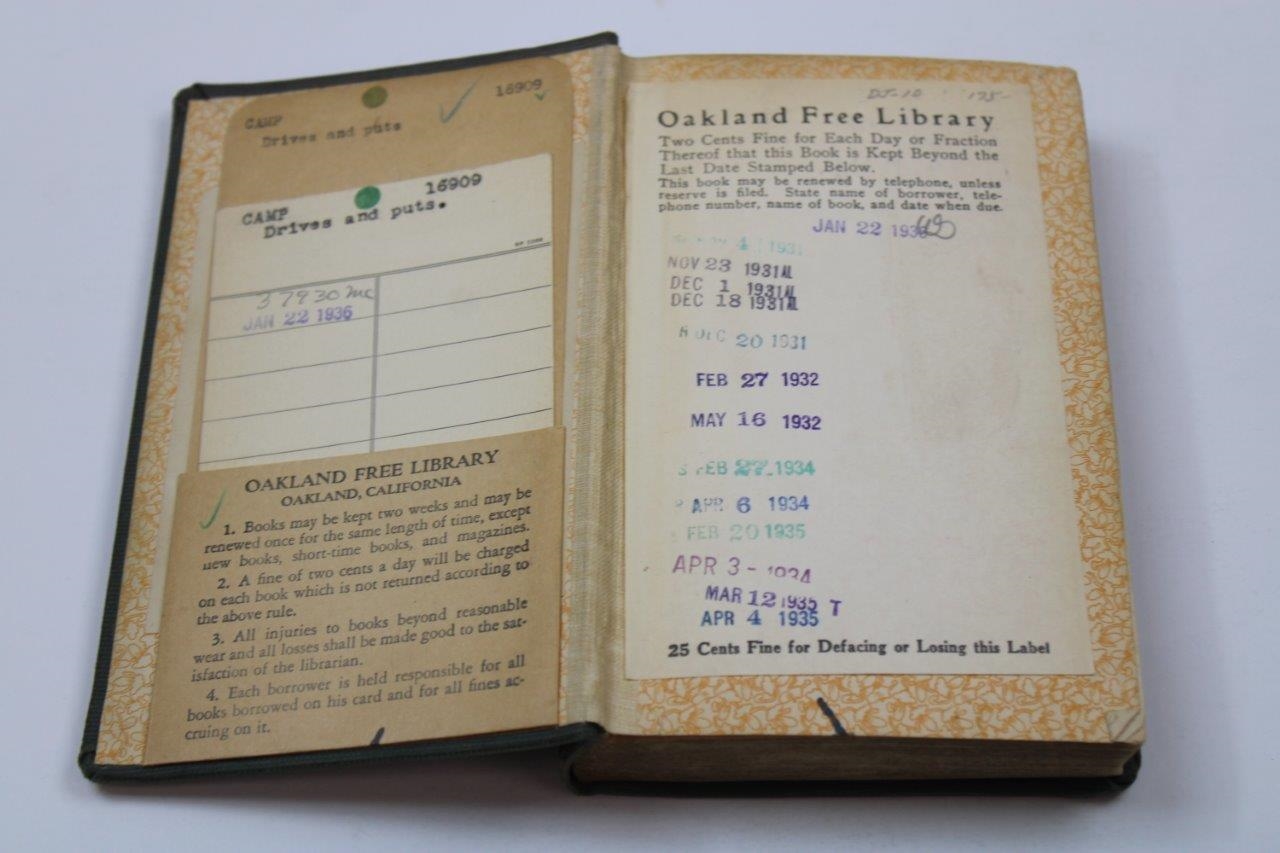 CAMP
16909
Drives and puts
16909
CAMP
Drives and puts.
37930
JAN 22 1936
OAKLAND FREE LIBRARY
OAKLAND, CALIFORNIA
1. Books may be kept two weeks and may be
renewed once for the same length of time, except
new books, short-time books, and magazines.
2. A fine of two cents a day will be charged
on each book which is not returned according to
the above rule.
3. All injuries to books beyond reasonable
wear and all losses shall be made good to the sat-
isfaction of the librarian.
4. Each borrower is held responsible for all
books borrowed on his card and for all fines ac-
cruing on it.
Oakland Free Library
Two Cents Fine for Each Day or Fraction
Thereof that this Book is Kept Beyond the
Last Date Stamped Below.
This book may be renewed by telephone, unless
reserve is filed. State name of borrower, tele-
phone number, name of book, and date when due.
JAN 22
4 1931
NOV 23 1931
DEC 1 1931
DEC 18 1931
DEC 20 1931
FEB 27 1932
MAY 16 1932
FEB 27 1934
APR 6 1934
FEB 20 1935
APR 3 - 1934
MAR 12 1935 T
APR 4 1935
25 Cents Fine for Defacing or Losing this Label